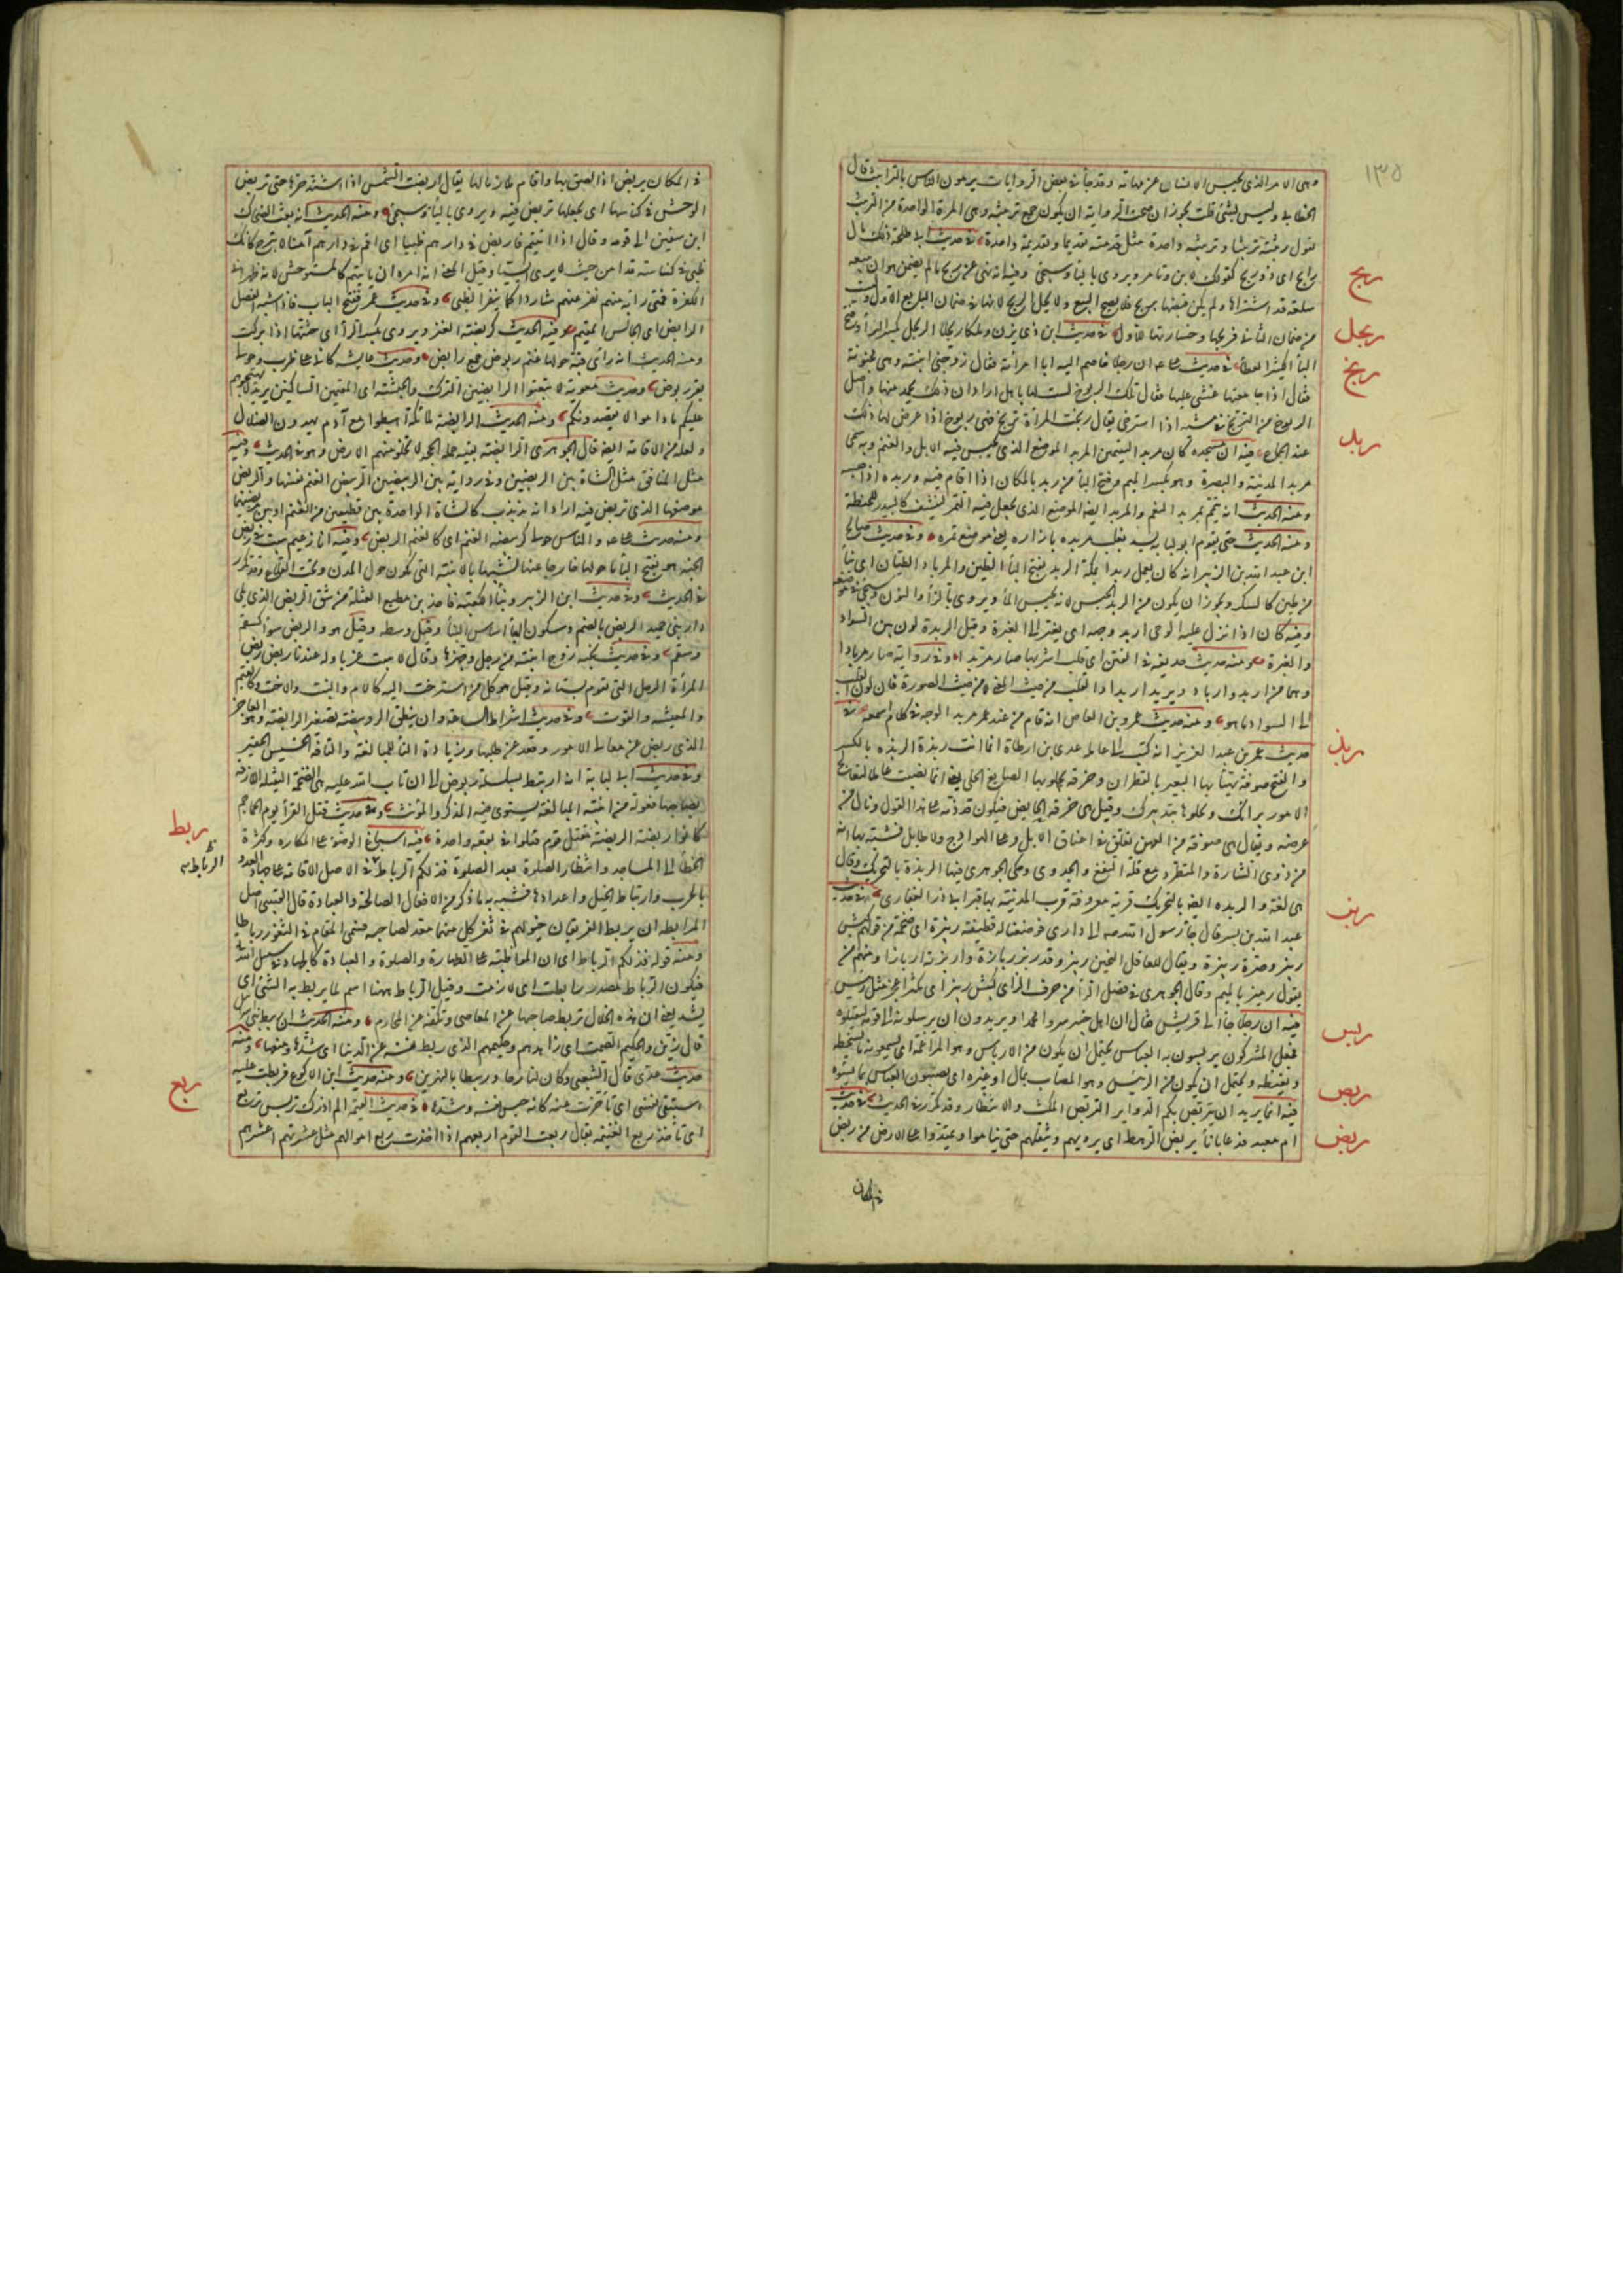 ١٣٥
وهى الامر الذى يحبس الانسان عن مهامه وقد جاء فى بعض الروايات يرمون الناس بالترابيث قال
الخطابى وليس بشئ قلت يجوز ان صحت الرواية ان يكون جمع تربيثة وهى المرة الواحدة من التربيث
تقول ربثته تربيثا وتربيثة واحدة مثل قدمته تقديما وتقديمة واحدة فى حديث ابى طلحة ذلك مال
رابح اى ذو ربح كقولك لابن وتامر ويروى بالياء وسيجئ وفيه انه نهى عن ربح ما لم يضمن هو ان يبيعه
سلعة قد اشتراها ولم يكن قبضها بربح فلا يصح البيع ولا يحل الربح لانها فى ضمان البايع الاول وليست
من ضمان الثانى فربحها وخسارتها للاول فى حديث ابن ذى يزن وملكا ربحلا الربحل بكسر الراء وفتح
الباء الكثير العطاء فى حديث على ان رجلا خاصم اليه ابا امرأته فقال زوجنى ابنته وهى مجنونة
فقال اذا جامعتها غشى عليها فقال تلك الربوخ لست لها باهل اراد ان ذلك يحمد منها واصل
الربوخ من التربخ فى مشيه اذا استرخى يقال ربخت المرأة تربخ فهى ربوخ اذا عرض لها ذلك
عند الجماع فيه ان مسجده كان مربدا ليتيمين المربد الموضع الذى يحبس فيه الابل والغنم وبه سمى
مربد المدينة والبصرة وهو بكسر الميم وفتح الباء من ربد بالمكان اذا اقام فيه وربده اذا حبسه
ومنه الحديث انه تيمم بمربد النعم والمربد ايضا الموضع الذى يجعل فيه التمر لينشف كالبيدر للحنطة
ومنه الحديث حتى يقوم ابو لبابة يسد ثعلب مربده بازاره يعنى موضع تمره وفى حديث صالح
ابن عبد الله بن الزبير انه كان يعمل ربدا بمكة الربد بفتح الباء الطين والرباد الطيان اى بناء
من طين كالسكر ويجوز ان يكون من الربد الحبس لانه يحبس الماء ويروى بالزاء والنون وسيجئ فى موضعه
وفيه كان اذا نزل عليه الوحى اربد وجهه اى يغير الى الغبرة وقيل الربدة لون بين السواد
والغبرة ومنه حديث حذيفة فى الفتن اى قلب اشربها صار مربدا وفى رواية صار مربادا
وهما من اربد وارباد ويريد اربدادا القلب من حيث المعنى لا من حيث الصورة فان لون القلب
الى السواد ما هو ومنه حديث عمرو بن العاص انه قام من عند عمر مربد الوجه فى كلام اسمعه فى
حديث عمر بن عبد العزيز انه كتب الى عامله عدى بن ارطاة انما انت ربذة الربذة بالكسر
والفتح صوفة يهنأ بها البعير بالقطران وخرقة يجلو بها الصايغ الحلى يعنى انما نصبت عاملا لتعالج
الامور برائك وتجلوها بتدبيرك وقيل هى خرقة الحايض فيكون قد ذمه على هذا القول ونال من
عرضه ويقال هى صوفة من العهن تعلق فى اعناق الابل وعلى الهوادج ولا طايل فشبهه بها انه
من ذوى الشارة والمنظر مع قلة النفع والجدوى وحكى الجوهرى فيها الربذة بالتحريك وقال
هى لغة والربذة ايضا بالتحريك قرية معروفة قرب المدينة بها قبر ابى ذر الغفارى فى حديث
عبد الله بن بسر قال جاء رسول الله صه الى دارى فوضعنا له قطيفة ربيزة اى ضخمة من قولهم كيس
ربيز وصرة ربيزة ويقال للعاقل الثخين ربيز وقد ربز ربازة واربزته ارباذا ومنهم من
يقول رميز بالميم وقال الجوهرى فى فصل الراء من حرف الزاى كبش ربيز اى مكتنز اعجز مثل ربيس
فيه ان رجلا جاء الى قريش فقال ان اهل خيبر اسروا محمدا ويريدون ان يرسلوه الى قومه ليقتلوه
فجعل المشركون يربسون به العباس يحتمل ان يكون من الارباس وهو المراغمة اى يسمعونه ما يسخطه
ويغيظه ويحتمل ان يكون من الربيس وهو المصاب بمال او غيره اى يصيبون العباس بما يسوءه
فيه انما يريد ان يتربص بكم الدواير التربص المكث والانتظار وقد تكرر فى الحديث فى حديث
ام معبد فدعا باناء يربض الرهط اى يرويهم ويثقلهم حتى يناموا ويمتدوا على الارض من ربض
ربح
ربحل
ربخ
ربد
ربذ
ربز
ربس
ربص
ربض
فى المكان
فى المكان يربض اذا لصق بها واقام ملازما لها يقال اربضت الشمس اذا اشتد حرها حتى تربض
الوحش فى كناسها اى تجعلها تربض فيه ويروى بالياء وسيجئ ومنه الحديث انه بعث الضحاك
ابن سفين الى قومه وقال اذا اتيتهم فاربض فى دارهم ظبيا اى اقم فى دارهم آمنا لا تبرح كانك
ظبى فى كناسه قد امن حيث لا يرى انسيا وقيل المعنى انه امره ان ياتيهم كالمتوحش لانه بين ظهرانى
الكفرة فمتى رابه منهم نفر عنهم شاردا كما ينفر الظبى وفى حديث عمر ففتح الباب فاذا شبه الفصيل
الرابض اى الجالس المقيم وفيه الحديث كربضة العنز ويروى بكسر الراء اى جثتها اذا بركت
ومنه الحديث انه رأى قبة حولها غنم ربوض جمع رابض وحديث عايشة كانه على ظرب وحوله
بقر ربوض وحديث معوية لا تبعثوا الرابضين الترك والحبشة اى المقيمين الساكنين يريد لا تهيجوهم
عليكم ما داموا لا يقصدونكم ومنه الحديث الرابضة ملائكة اهبطوا مع آدم يهدون الضلال
ولعله من الاقامة ايضا قال الجوهرى الرابضة بقية حملة الحجة لا تخلو منهم الارض وهو فى الحديث وفيه
مثل المنافق مثل الشاة بين الربضين وفى رواية بين الربيضين الربيض الغنم نفسها والربض
موضعها الذى تربض فيه اراد انه مذبذب كالشاة الواحدة بين قطيعين من الغنم او بين مربضيهما
ومنه حديث على والناس حولى كربيضة الغنم اى كالغنم الربض وفيه انا زعيم ببيت فى ربض
الجنة هو بفتح الباء ما حولها خارجا عنها تشبيها بالابنية التى تكون حول المدن وتحت القلاع وقد تكرر
فى الحديث وفى حديث ابن الزبير وبناء الكعبة فاخذ بن مطيع العتلة من شق الربض الذى يلى
دار بنى حميد الربض بالضم وسكون الباء اساس البناء وقيل وسطه وقيل هو والربض سواء كسقم
وسقم وفى حديث نجبة زوج ابنته من رجل وجهزها وقال لا يبيت عزبا وله عندنا ربض ربض
المرأة الرجل التى تقوم بشانه وقيل هو كل من استرحت اليه كالام والبنت والاخت وكالغنم
والمعيشة والقوت وفى حديث اشراط الساعة وان ينطق الرويبضة تصغير الرابضة وهو العاجز
الذى ربض عن معالى الامور وقعد عن طلبها وزيادة التاء للمبالغة والتافه الخسيس الحقير
وفى حديث ابى لبابة انه ارتبط بسلسلة ربوض الى ان تاب الله عليه هى الضخمة الثقيلة اللازقة
بصاحبها فعول من ابنية المبالغة يستوى فيه المذكر والمؤنث وفى حديث قتل القراء يوم الجماجم
كانوا ربضة الربضة مقتل قوم قتلوا فى بقعة واحدة فيه اسباغ الوضوء على المكاره وكثرة
الخطاء الى المساجد وانتظار الصلوة بعد الصلوة فذلكم الرباط فى الاصل الاقامة على جهاد العدو
بالحرب وارتباط الخيل واعدادها فشبه به ما ذكر من الافعال الصالحة والعبادة قال القتيبى اصل
المرابطة ان يربط الفريقان خيولهم فى ثغر كل منهما معد لصاحبه فسمى المقام فى الثغور رباطا
ومنه قوله فذلكم الرباط اى ان المواظبة على الطهارة والصلوة والعبادة كالجهاد فى سبيل الله
فيكون الرباط مصدر رابطت اى لازمت وقيل الرباط ههنا اسم لما يربط به الشئ اى
يشد يعنى ان هذه الخلال تربط صاحبها عن المعاصى وتكفه عن المحارم ومنه الحديث ان ربيط بنى اسرائيل
قال زين الحكيم الصمت اى زاهدهم وحكيمهم الذى ربط نفسه عن الدنيا اى شدها ومنعها ومنه
حديث عدى قال الشعبى وكان لنا جارا وربيطا بالنهرين ومنه حديث ابن الاكوع فربطت عليه
استبقى نفسى اى تأخرت عنه كانه حبس نفسه وشدها فى حديث القيمة الم اذرك تربس وتربع
اى تأخذ ربع الغنيمة يقال ربعت القوم اربعهم اذا اخذت ربع اموالهم مثل عشرتهم اعشرهم
ربط
الرباط
ربع